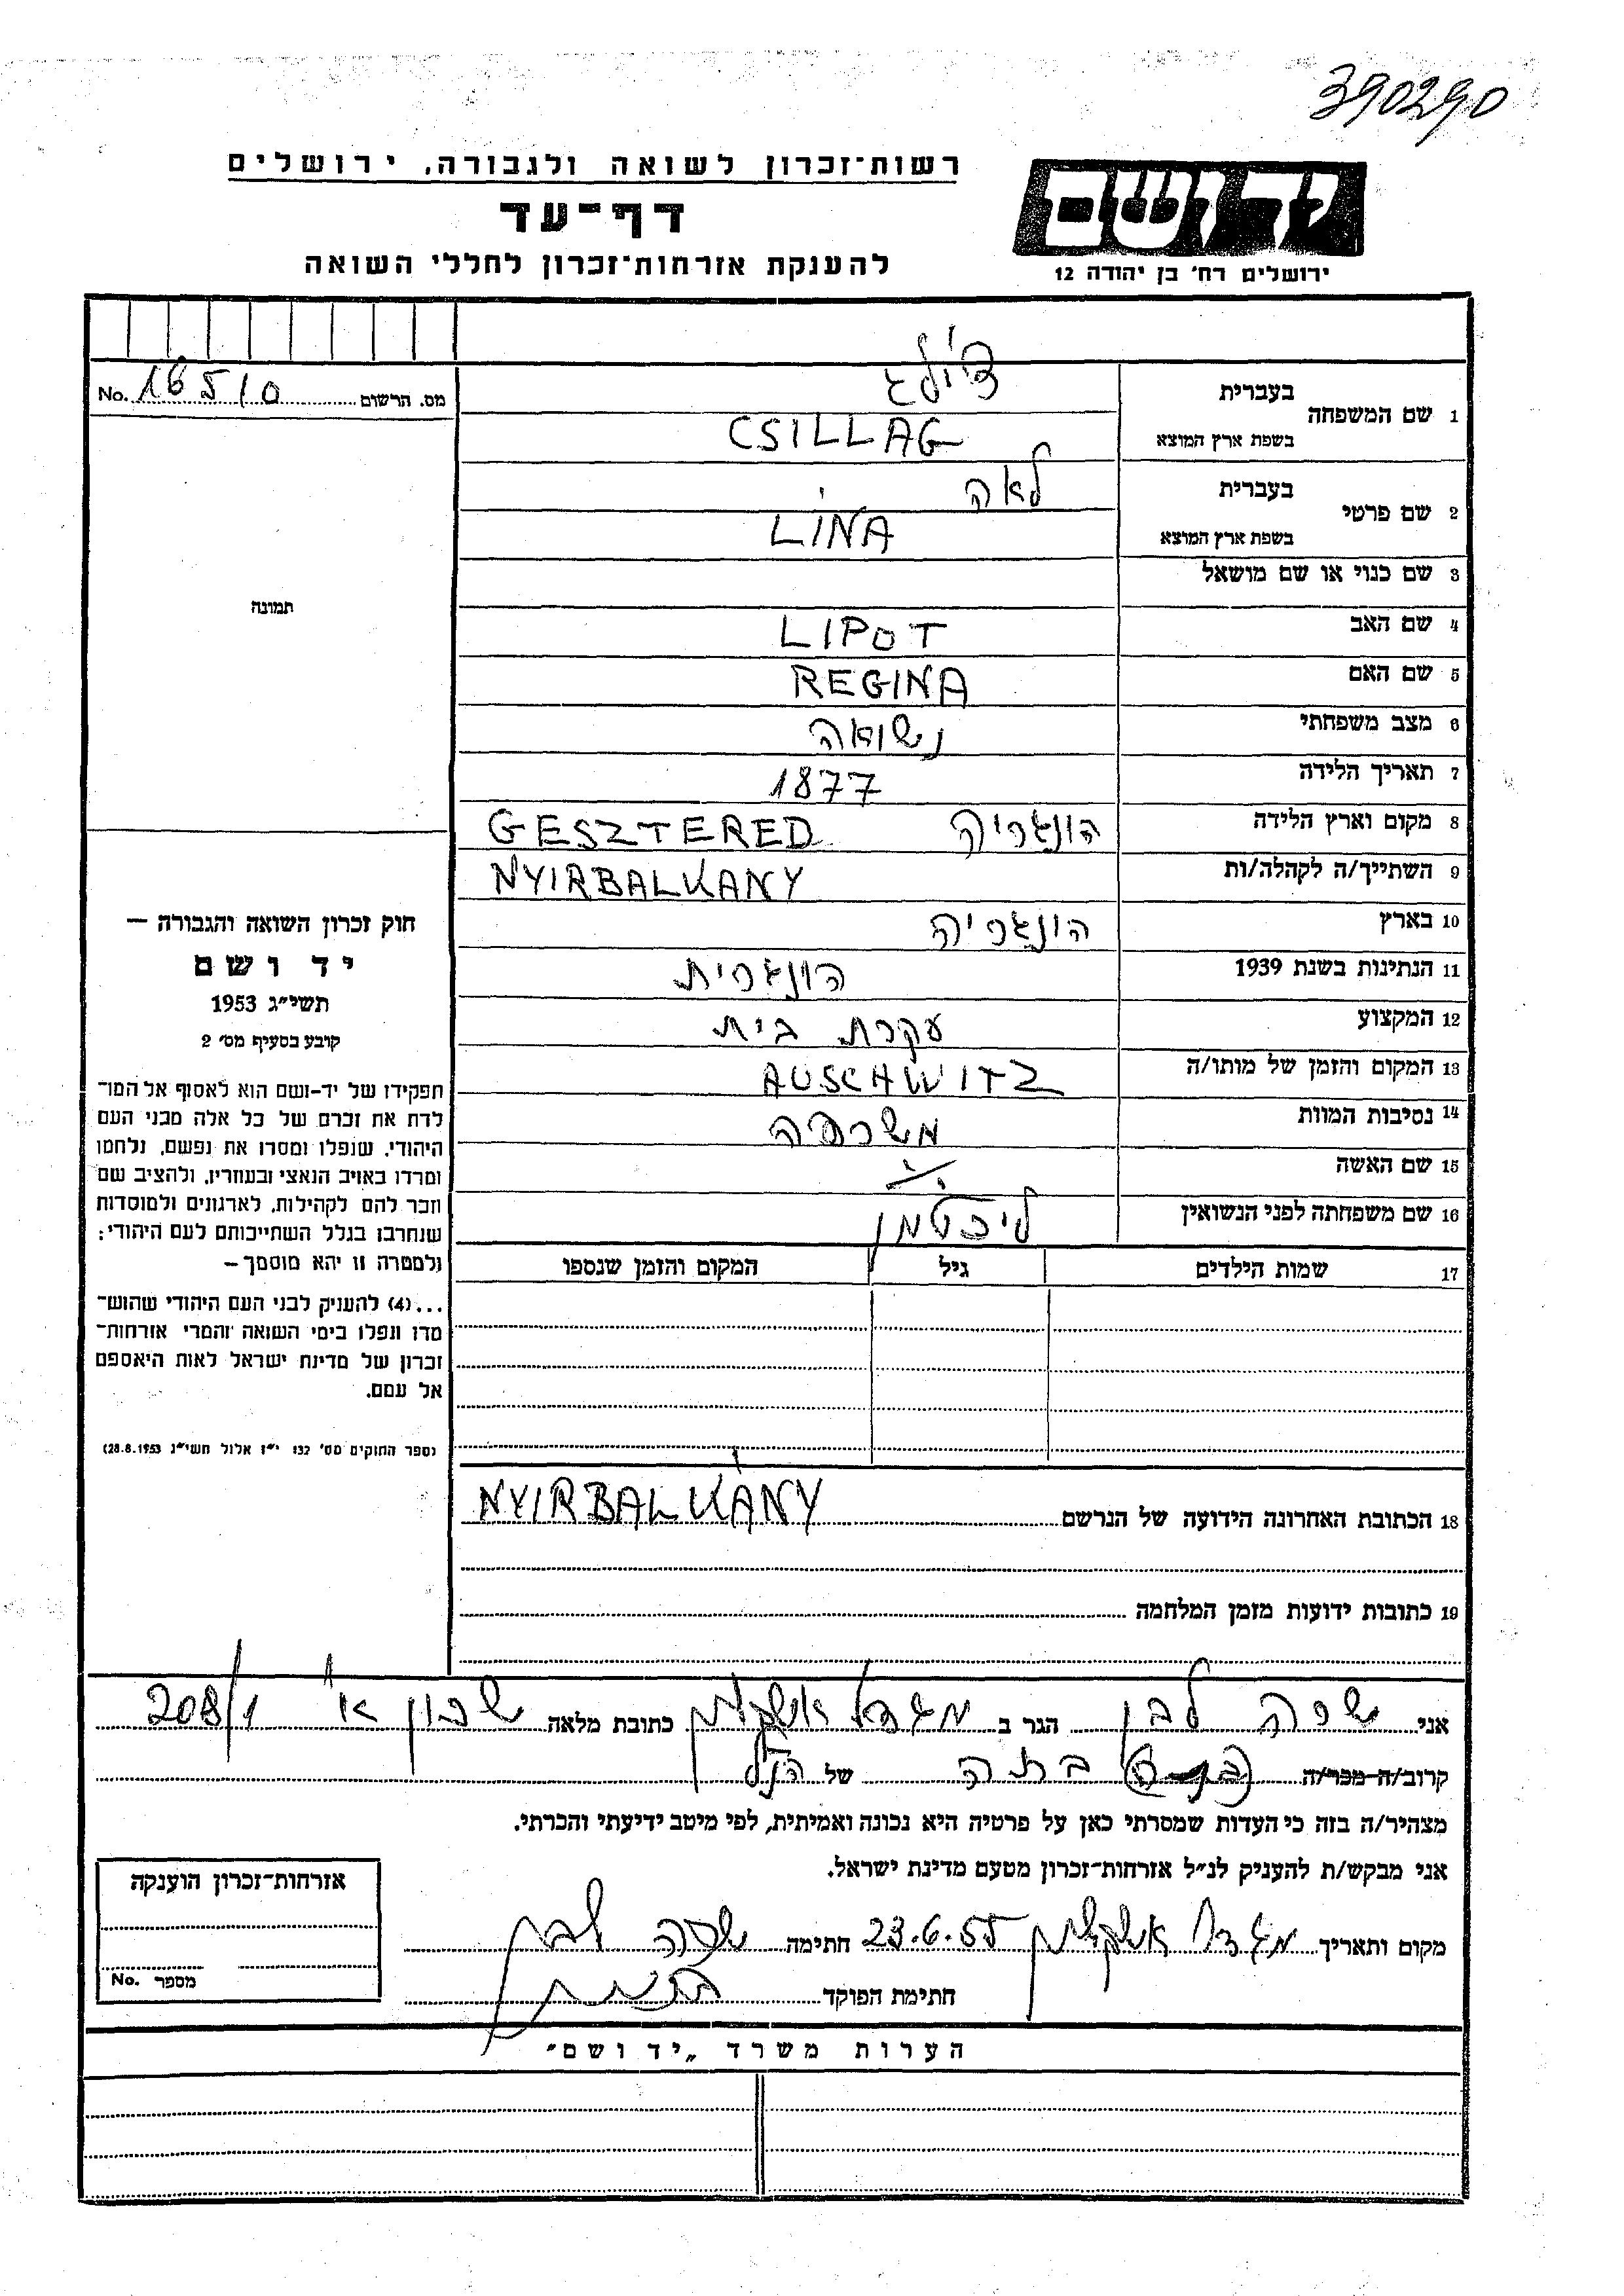 390290
יד ושם
ירושלים רח' בן יהודה 12
רשות־זכרון לשואה ולגבורה, ירושלים
דף־עד
להענקת אזרחות־זכרון לחללי השואה
מס. הרשום No. 16510
1 שם המשפחה בעברית צ'ילג
בשפת ארץ המוצא CSILLAG
2 שם פרטי בעברית לאה
בשפת ארץ המוצא LINA
3 שם כנוי או שם מושאל
4 שם האב LIPOT
5 שם האם REGINA
6 מצב משפחתי נשואה
7 תאריך הלידה 1877
8 מקום וארץ הלידה הונגריה GESZTERED
9 השתייך/ה לקהלה/ות NYIRBALKÁNY
10 בארץ הונגריה
11 הנתינות בשנת 1939 הונגרית
12 המקצוע עקרת בית
13 המקום והזמן של מותו/ה AUSCHWITZ
14 נסיבות המוות משרפה
15 שם האשה ./.
16 שם משפחתה לפני הנשואין ליכטמן
17 שמות הילדים גיל המקום והזמן שנספו
18 הכתובת האחרונה הידועה של הנרשם NYIRBALKÁNY
19 כתובות ידועות מזמן המלחמה
תמונה
חוק זכרון השואה והגבורה —
יד ושם
תשי״ג 1953
קובע בסעיף מס׳ 2
תפקידו של יד-ושם הוא לאסוף אל המו־
לדת את זכרם של כל אלה מבני העם
היהודי, שנפלו ומסרו את נפשם, נלחמו
ומרדו באויב הנאצי ובעוזריו, ולהציב שם
וזכר להם לקהילות, לארגונים ולמוסדות
שנחרבו בגלל השתייכותם לעם היהודי;
ולמטרה זו יהא מוסמך —
...(4) להעניק לבני העם היהודי שהוש־
מדו ונפלו בימי השואה והמרי אזרחות־
זכרון של מדינת ישראל לאות היאספם
אל עמם.
(ספר החוקים מס׳ 132 י״ז אלול תשי״ג 28.8.1953)
אני שרה לבן הגר ב מגדל אשקלון כתובת מלאה שכון א' 208/1
קרוב/ה מכר/ה בתה של הנ"ל
מצהיר/ה בזה כי העדות שמסרתי כאן על פרטיה היא נכונה ואמיתית, לפי מיטב ידיעתי והכרתי.
אני מבקש/ת להעניק לנ״ל אזרחות־זכרון מטעם מדינת ישראל.
מקום ותאריך מגדל אשקלון 23.6.55 חתימה שרה לבן
חתימת הפוקד
אזרחות־זכרון הוענקה
מספר No.
הערות משרד „יד ושם״